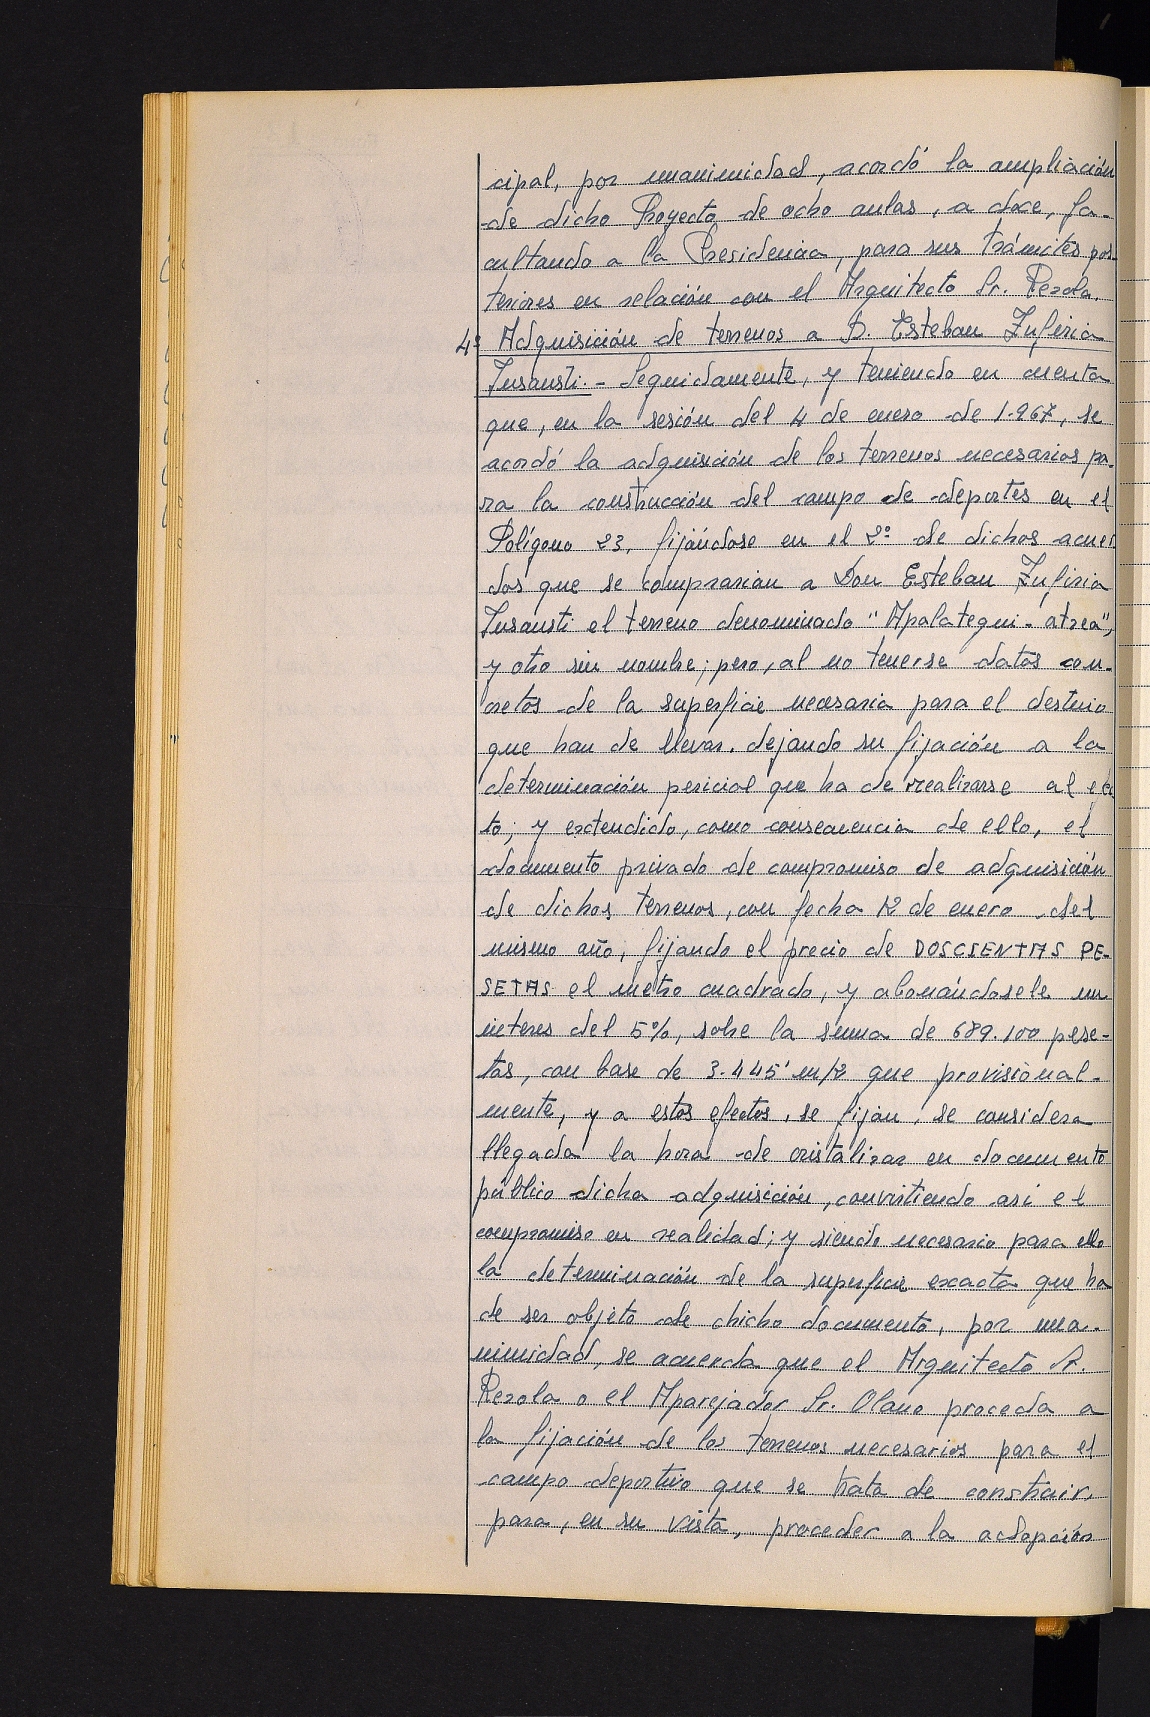 cipal, por unanimidad, acordó la ampliación
de dicho Proyecto de ocho aulas, a doce, fa-
cultando a la Presidencia, para sus trámites pos-
teriores en relación con el Arquitecto Sr. Rezola.
4º Adquisición de terrenos a D. Esteban Zufiria
Insausti.- Seguidamente, y teniendo en cuenta
que, en la sesión del 4 de enero de 1.967, se
acordó la adquisición de los terrenos necesarios pa-
ra la construcción del campo de deportes en el
Polígono 23, fijándose en el 2º de dichos acuer
dos que se comprarian a Don Esteban Zufiria
Insausti el terreno denominado "Apalategui-atzea",
y otro sin nombre; pero, al no tenerse datos con-
cretos de la superficie necesaria para el destino
que han de llevar, dejando su fijación a la
determinación pericial que ha de realizarse al efec
to; y extendido, como consecuencia de ello, el
documento privado de compromiso de adquisición
de dichos terrenos, con fecha 12 de enero del
mismo año, fijando el precio de DOSCIENTAS PE-
SETAS el metro cuadrado, y abonándosele un
interes del 5%, sobre la suma de 689.100 pese-
tas, con base de 3.445' m/2 que provisional-
mente, y a estos efectos, se fijan, se considera
llegada la hora de cristalizar en documento
público dicha adquisición, convirtiendo asi el
compromiso en realidad; y siendo necesario para ello
la determinación de la superficie exacta que ha
de ser objeto de dicho documento, por una-
nimidad, se acuerda que el Arquitecto Sr.
Rezola o el Aparejador Sr. Olano proceda a
la fijación de los terrenos necesarios para el
campo deportivo que se trata de construir,
para, en su vista, proceder a la adopción